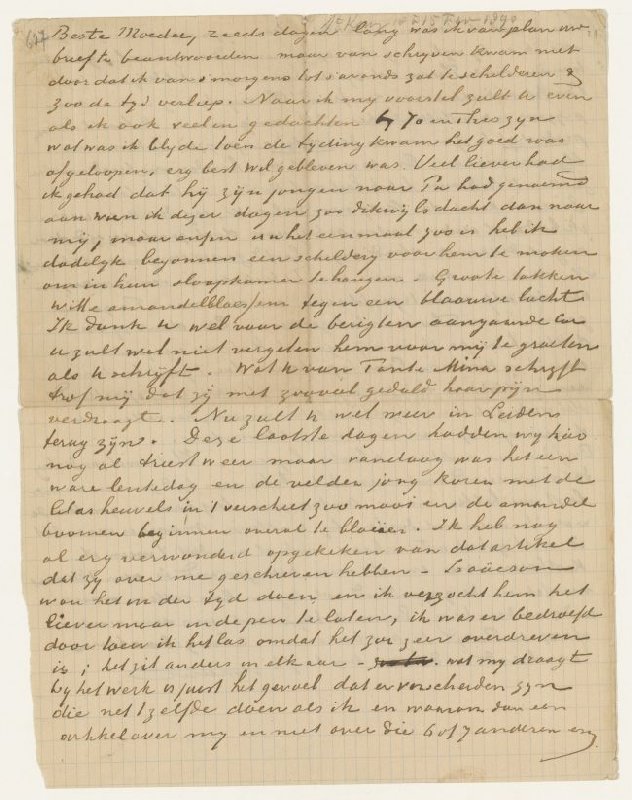 Beste Moeder, reeds dagen lang was ik van plan uw
brief te beantwoorden maar van schrijven kwam niet
doordat ik van smorgens tot savonds zat te schilderen &
zoo de tijd verliep. Naar ik mij voorstel zult U even
als ik ook veel in gedachten bij Jo en Theo zijn
wat was ik blijde toen de tijding kwam het goed was
afgeloopen, erg best Wil gebleven was. Veel liever had
ik gehad dat hij zijn jongen naar Pa had genoemd
aan wien ik dezer dagen zoo dikwijls dacht dan naar
mij, maar enfin nu het eenmaal zoo is heb ik
dadelijk begonnen een schilderij voor hem te maken
om in hun slaapkamer te hangen. – Groote takken
witte amandelbloesem tegen een blaauwe lucht.
Ik dank U wel voor de berigten aangaande Cor
U zult wel niet vergeten hem voor mij te groeten
als U schrijft. Wat U van Tante Mina schrijft
trof mij dat zij met zooveel geduld haar pijn
verdraagt. Nu zult U wel weer in Leiden
terug zijn. Deze laatste dagen hadden wij hier
nog al triest weer maar vandaag was het een
ware lentedag en de velden jong koren met de
lilas heuvels in 't verschiet zoo mooi en de amandel
boomen beginnen overal te bloeien. Ik heb nog
al erg verwonderd opgekeken van dat artikel
dat zij over me geschreven hebben – Isaäcson
wou het in der tijd doen en ik verzocht hem het
liever maar in de pen te laten, ik was er bedroefd
door toen ik het las omdat het zoo zeer overdreven
is; het zit anders in elkaar – wat mij draagt
bij het werk is juist het gevoel dat er verscheiden zijn
die net 't zelfde doen als ik en waarom dan een
artikel over mij en niet over die 6 of 7 anderen enz